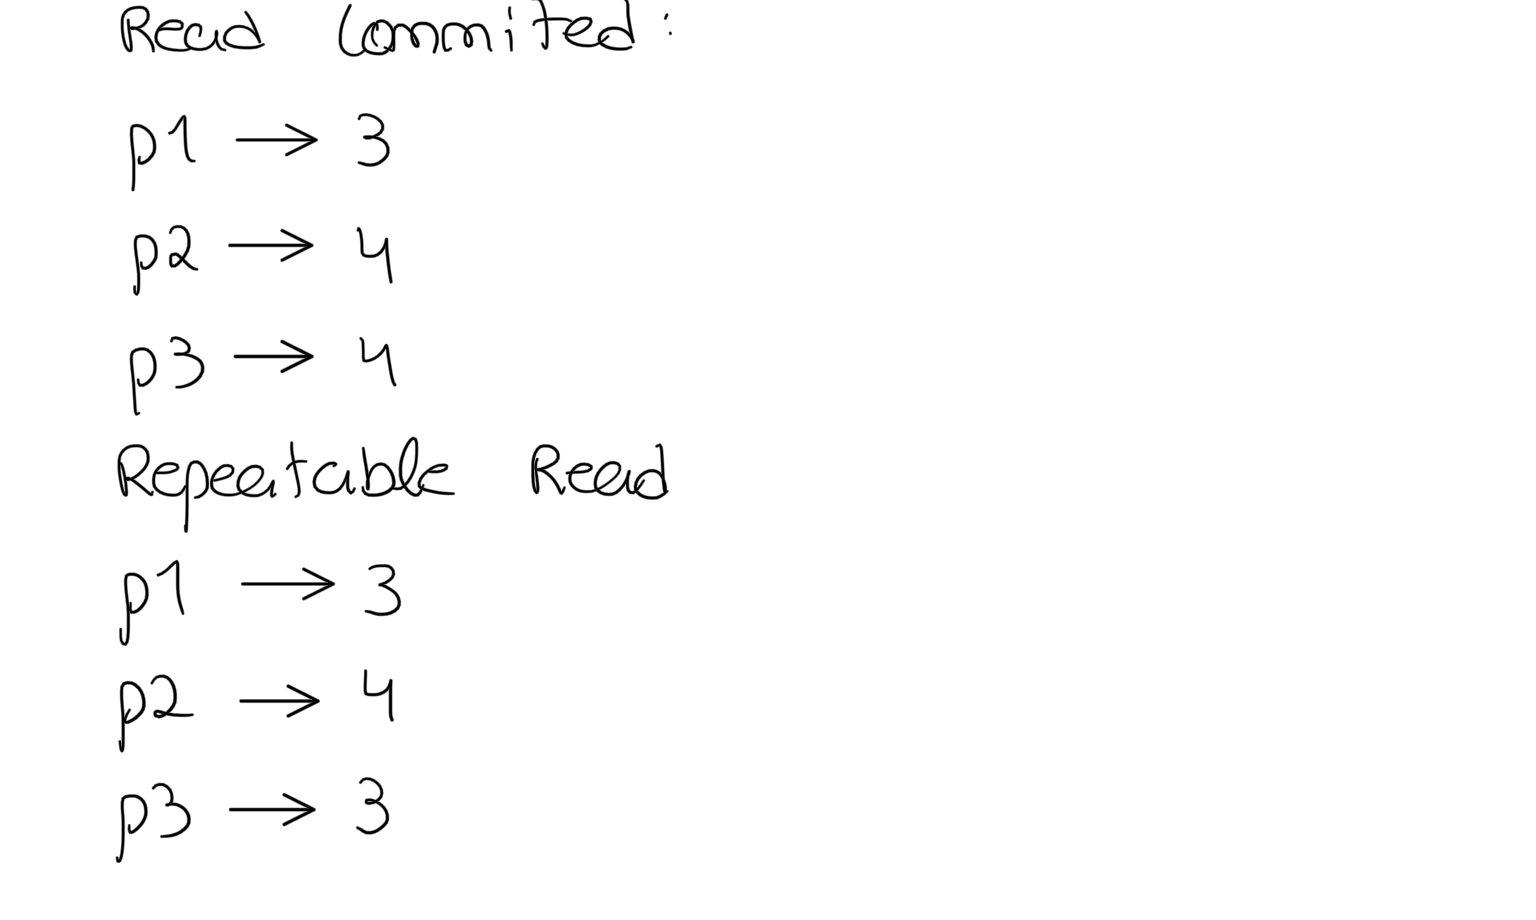 Read Commited:
p1 → 3
p2 → 4
p3 → 4
Repeatable Read
p1 → 3
p2 → 4
p3 → 3